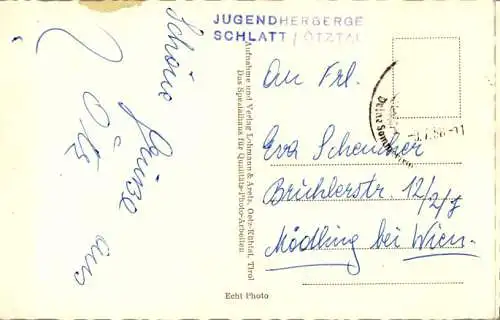 JUGENDHERBERGE
SCHLATT / ÖTZTAL
Schöne
Grüße aus
Ötz
Aufnahme und Verlag Lohmann & Aretz, Oetz-Kühtai, Tirol
Das Spezialhaus für Qualitäts-Photo-Arbeiten
An Frl.
Eva Scheucher
Brühlerstr. 12/2/7
Mödling bei Wien.
Echt Photo